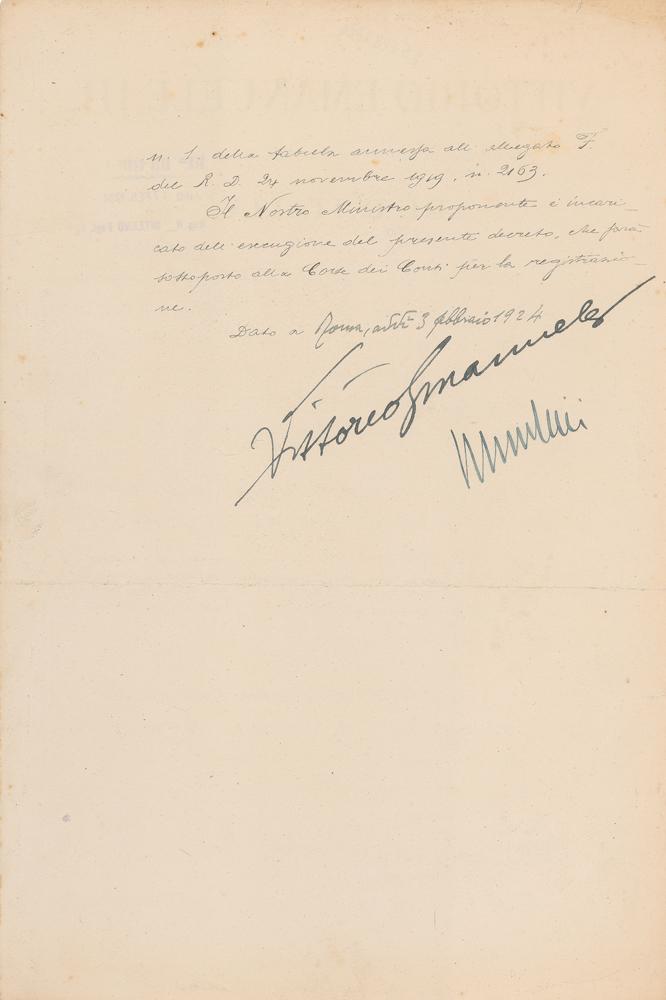 n. 1 della tabella annessa all'allegato F.
del R. D. 24 novembre 1919, n. 2163.
Il Nostro Ministro proponente è incari-
cato dell'esecuzione del presente decreto, che sarà
sottoposto alla Corte dei Conti per la registrazio-
ne.
Dato a Roma, addì 3 febbraio 1924
Vittorio Emanuele
Mussolini